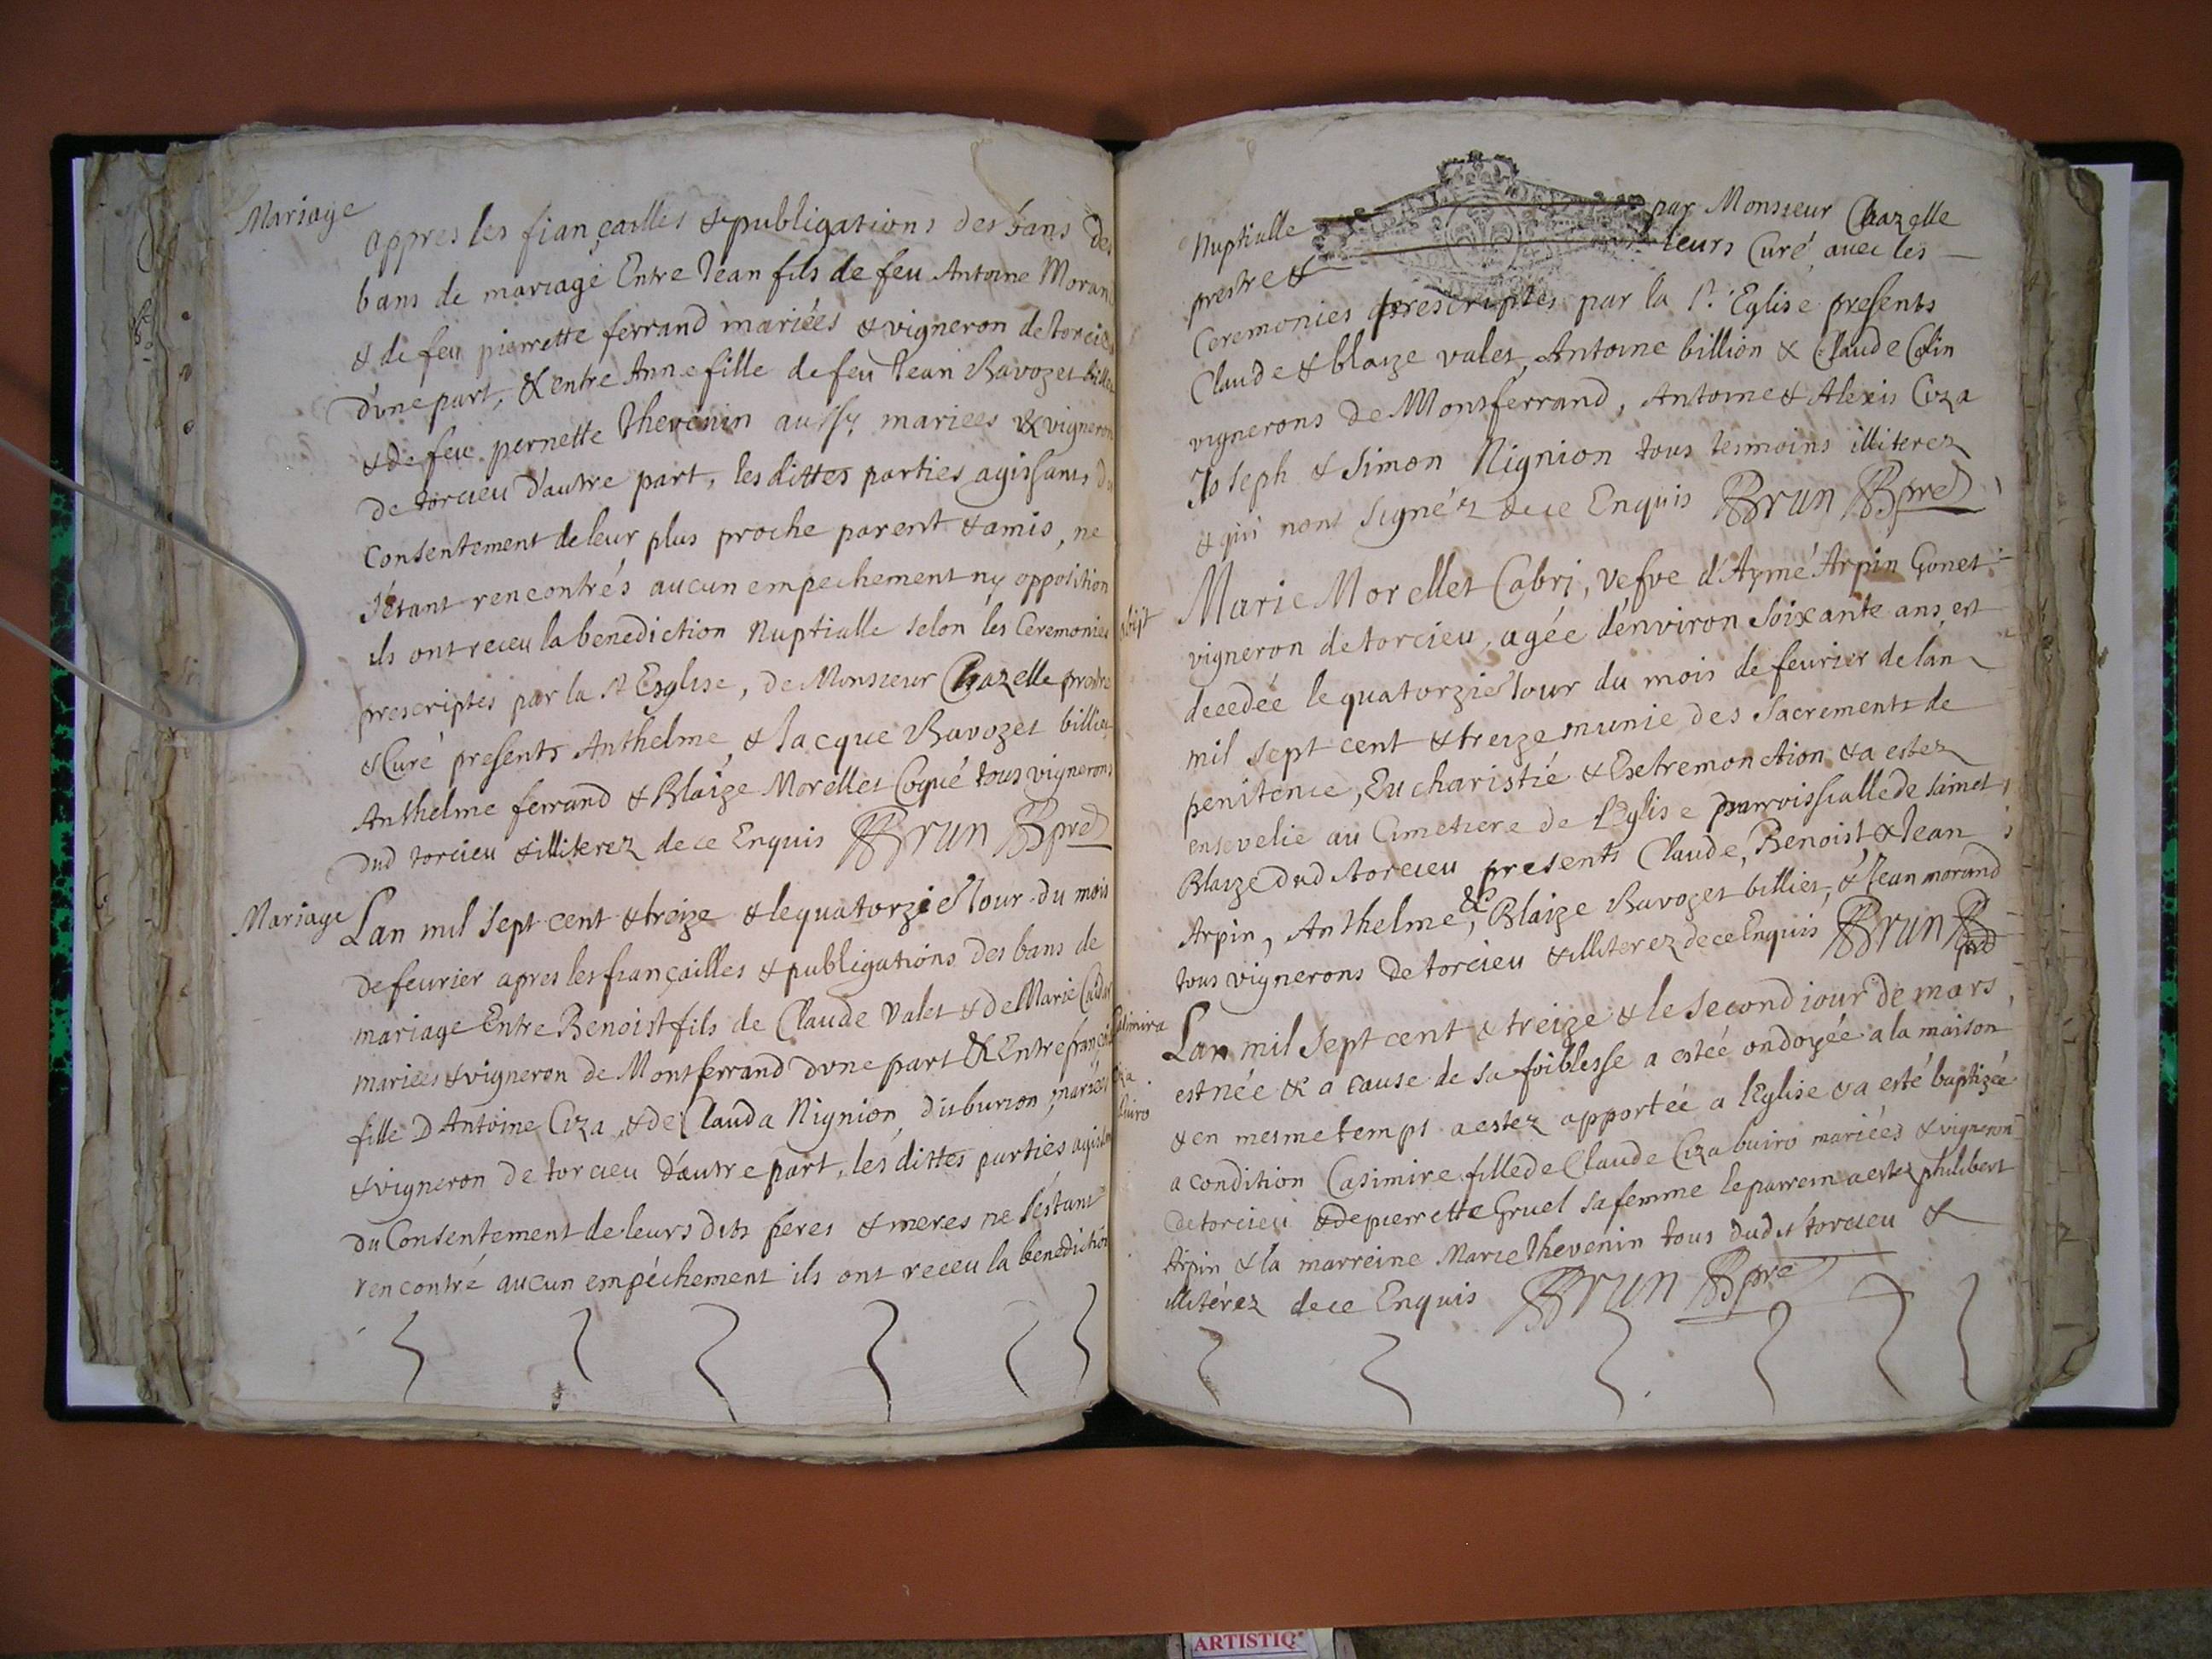 Mariage
appres les fiançailles & publigations des bans des
bans de mariage Entre Jean fils de feu Antoine Moran
& de feu pierrette ferrand mariées & vigneron de torcieu
dune part, & entre Anne fille de feu Jean Ravozet billiet
& de feu pernette thevenin aussy mariees & vigneron
de torcieu d'autre part, les dittes parties agissants du
Consentement de leur plus proche parent & amis, ne
s'étant rencontrés aucun empechement ny opposition
ils ont receu la benediction Nuptialle selon les Ceremonies
prescriptes par la St Esglise, de Monsieur Chazelle prestre
& Curé presents Anthelme & Jacque Ravozet billiet
Anthelme ferrand & Blaize Morellet Coqué tous vignerons
dud torcieu & illiterez de ce Enquis Brun pre
Mariage
Lan mil sept cent & treize & le quatorzie Jour du mois
de feurier apres les françailles & publigations des bans de
mariage Entre Benoist fils de Claude Valet & de Marie
mariées & vigneron de Montferrand dune part & Entre françoi
fille D Antoine Ciza & de Clauda Nignion, dit burion mariées
& vigneron de torcieu d'autre part, les dittes parties agissan
du Consentement de leurs dits peres & meres ne s'estant
rencontré aucun empéchement ils ont receu la benediction
Nuptialle par Monsieur Chazelle
prestre & leurs Curé avec les
Ceremonies prescriptes par la St Eglise presents
Claude & blaize valet, Antoine billion & Claude Colin
vignerons de Montferrand, Antoine & Alexis Ciza
Joseph & Simon Nignion tous tesmoins illiterez
& qui nont signéz de ce Enquis Brun pre
Marie Morellet Cabri, vefve d'Aymé Arpin Gonet
vigneron de torcieu, agée denviron soixante ans, est
decedée le quatorzie Jour du mois de feurier de lan
mil sept cent & treize munie des Sacrements de
penitence, Eucharistié & Extremonction & a estez
ensevelie au Cimetiere de l'Eglise parroissialle de saint
Blaize dud torcieu presents Claude, Benoist & Jean
Arpin, Anthelme, & Blaize Ravozet billiet, & Jean morand
tous vignerons de torcieu & illiterez de ce Enquis Brun pre
Casimira
Ciza
buiro
Lan mil sept cent & treize & le second iour de mars
est née & a cause de sa foiblesse a estée ondoyée a la maison
& en mesme temps a estez apportée a l'Eglise & a esté baptizée
a condition Casimire fille de Claude Ciza buiro mariées & vigneron
de torcieu & de pierrette Gruel sa femme le parrein a estez philibert
Arpin & la marreine Marie thevenin tous dudit torcieu &
illitérez de ce Enquis Brun pre
ARTISTIQ